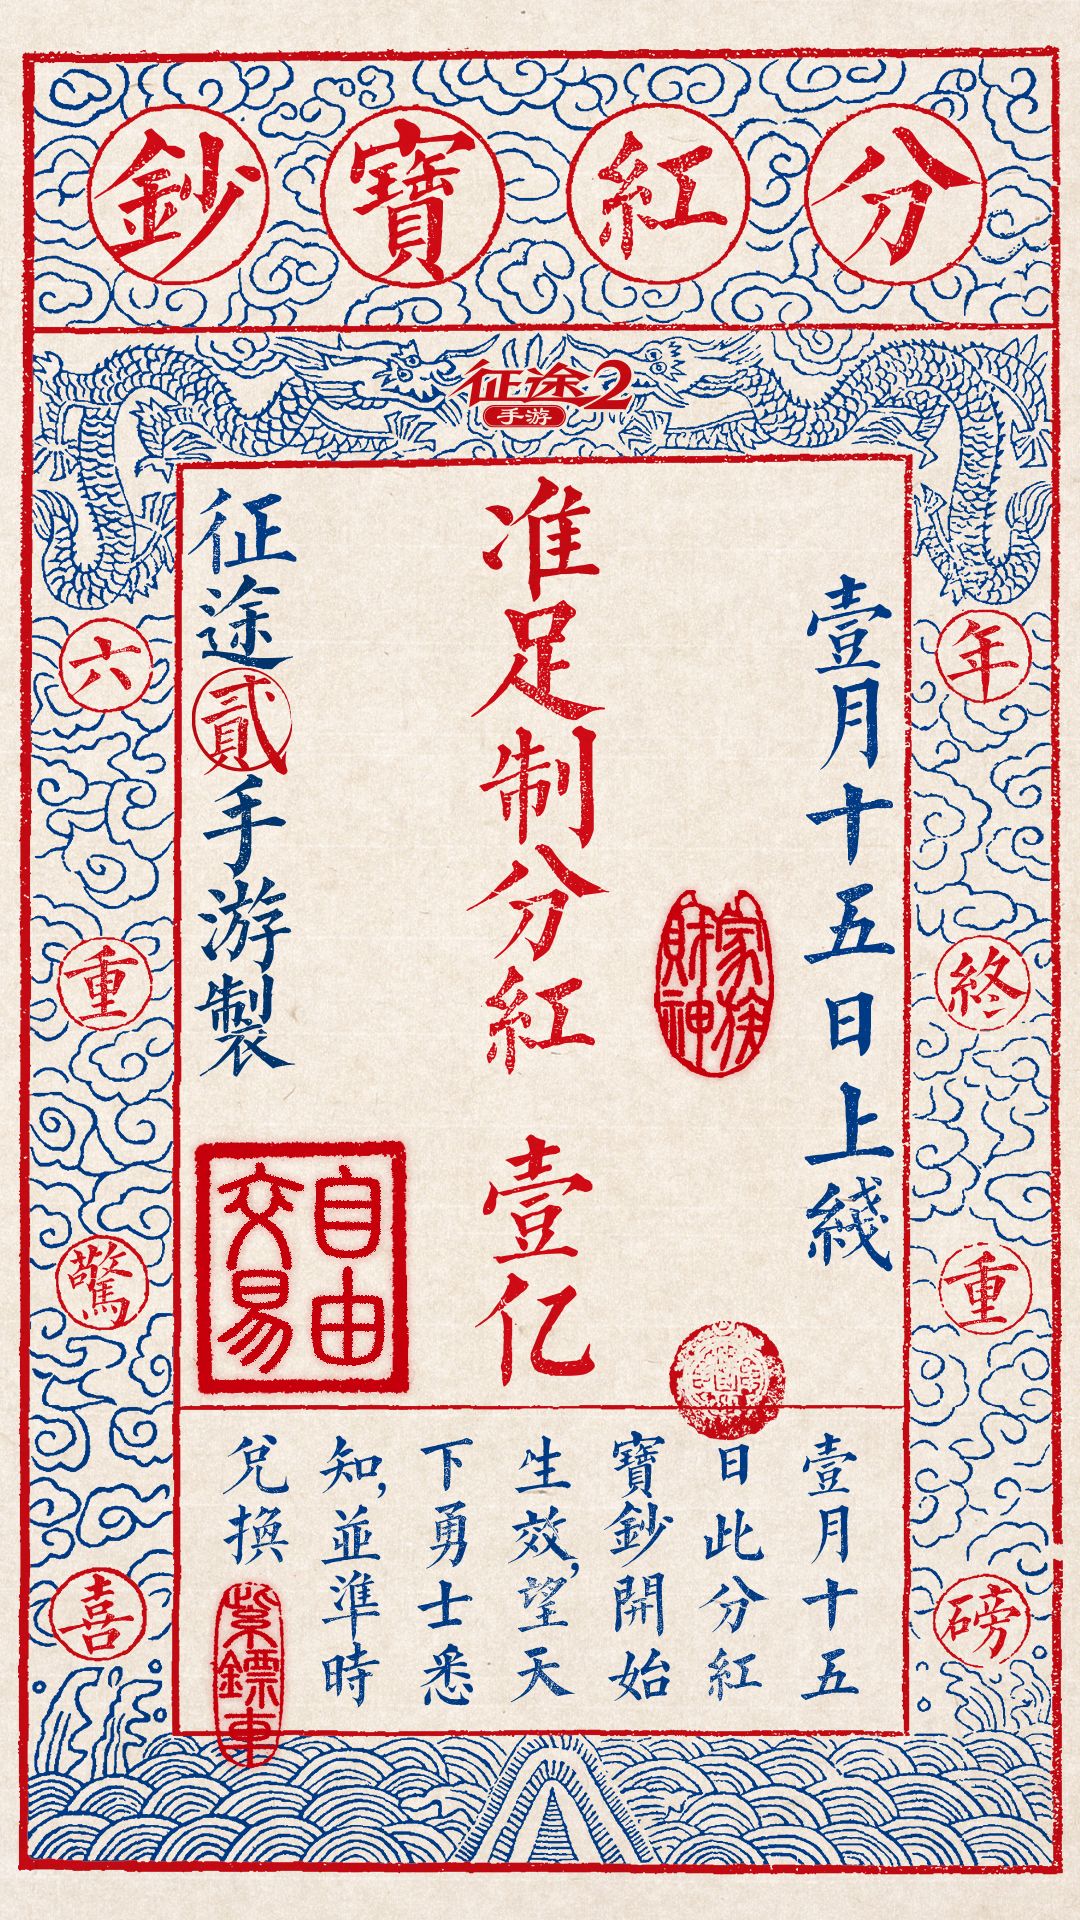 分紅寶鈔
征途2
手游
年終重磅
六重驚喜
壹月十五日上綫
家族財神
准足制分红 壹亿
征途貳手游製
自由交易
壹月十五
日此分紅
寶鈔開始
生效,望天
下勇士悉
知,並準時
兌換
紫鏢車